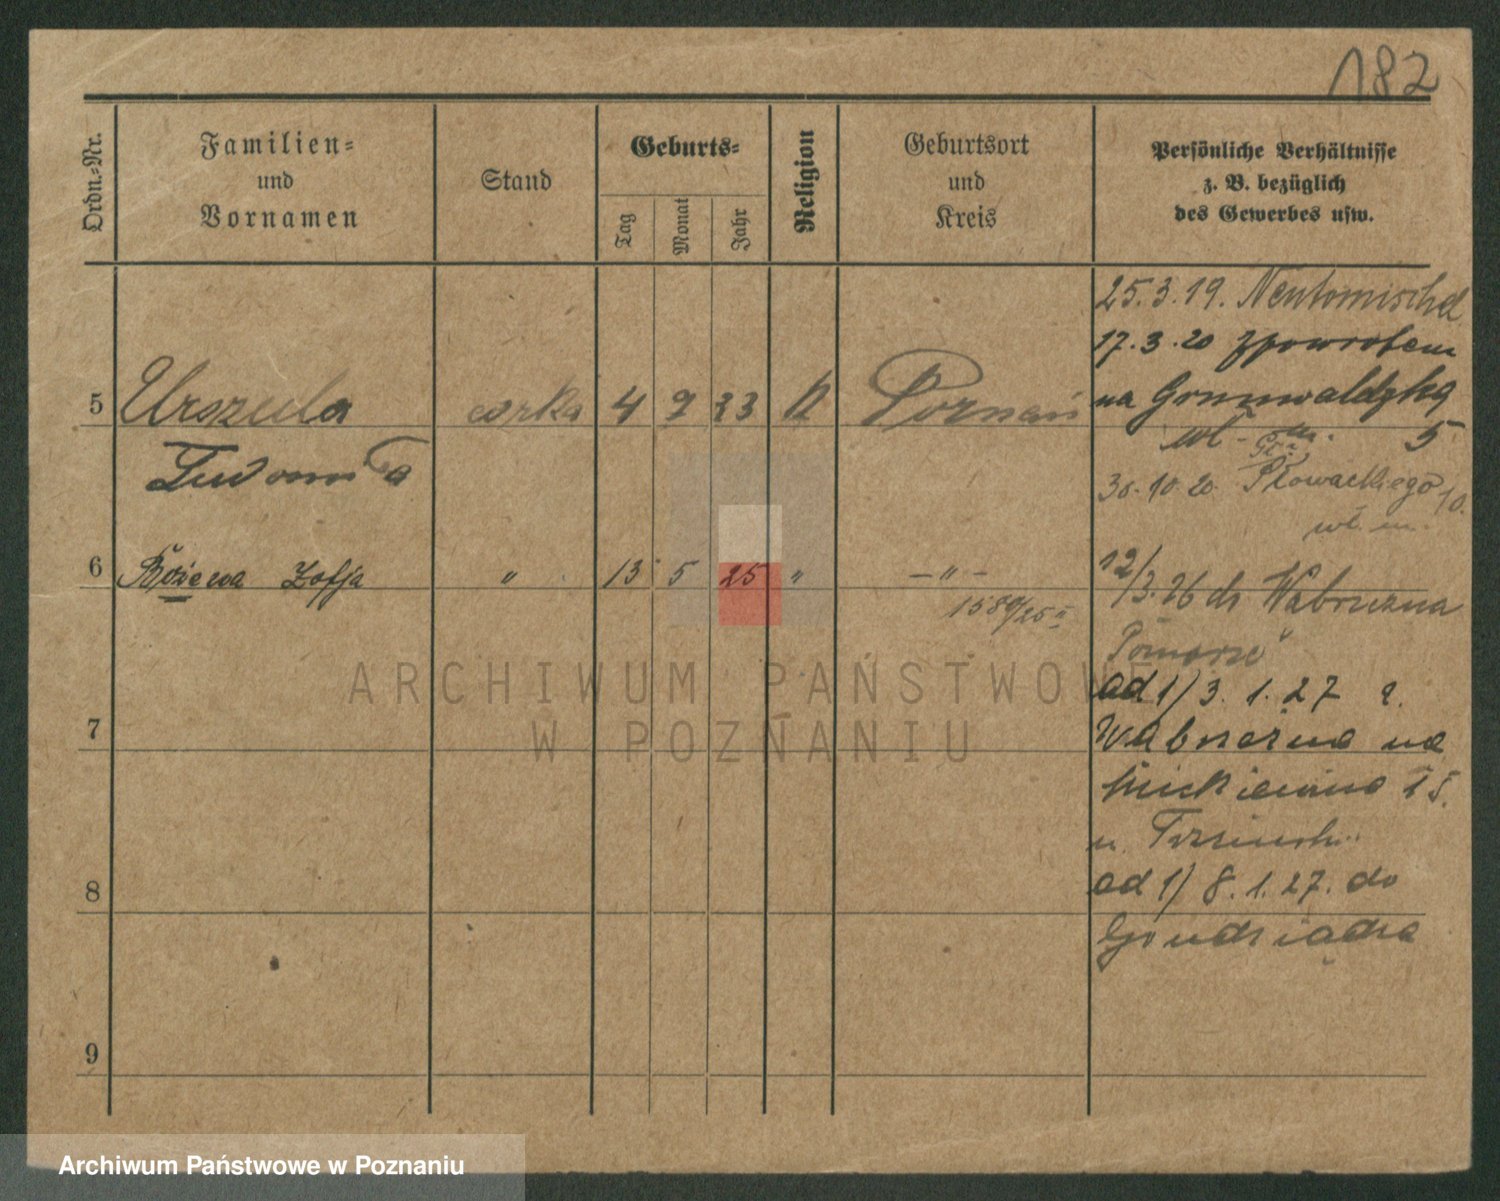 182
Ordn.-Nr.
Familien-
und
Vornamen
Stand
Geburts-
Tag
Monat
Jahr
Religion
Geburtsort
und
Kreis
Persönliche Verhältnisse
z. B. bezüglich
des Gewerbes usw.
25.3.19. Neutomischel
17.3.20 z powrotem
5 Urszula córka 4 9 23 K Poznań na Grunwaldzką
wł. m. 5
Ludomiła
30.10.20 Słowackiego 10.
wł. m.
6 Bożena Zofja " 13 5 25 " — " —
1580/25 II
12/3.26 do Wąbrzeźna
Pomorze
od 1) 3. 1. 27 z
7 Wąbrzeźna na
Mickiewicza 15.
u
8 od 1) 8. 1. 27. do
Grudziądza
9
ARCHIWUM PAŃSTWOWE
W POZNANIU
Archiwum Państwowe w Poznaniu